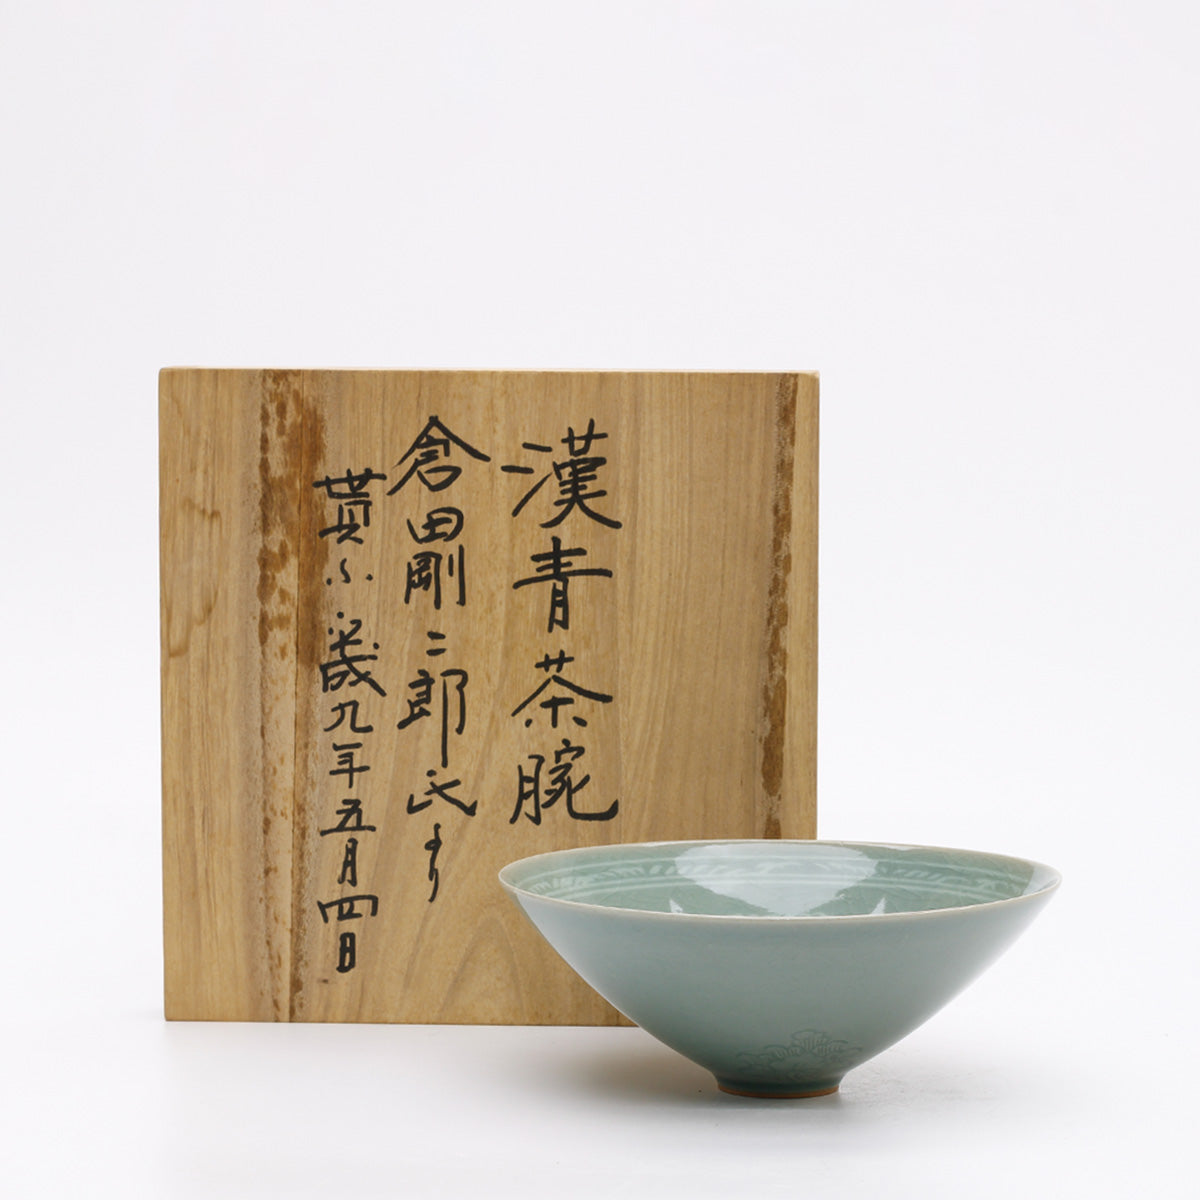 漢青茶腕
倉田剛二郎氏より
貰ふ 歳九年五月四日